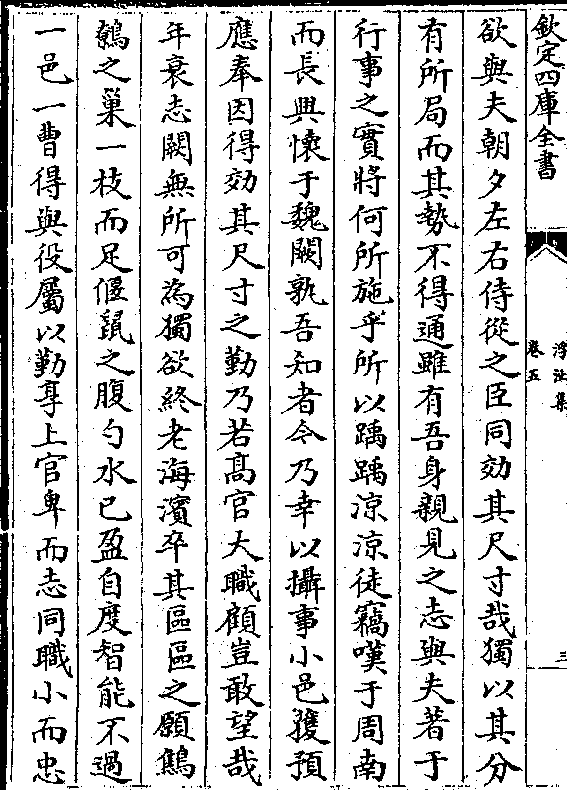 欽定四庫全書
浮沚集
卷五
三
欲與夫朝夕左右侍從之臣同効其尺寸哉獨以其分
有所局而其勢不得通雖有吾身親見之志與夫著于
行事之實將何所施乎所以踽踽涼涼徒竊嘆于周南
而長興懷于魏闕孰吾知者令乃幸以攝事小邑獲預
應奉因得効其尺寸之勤乃若髙官大職顧豈敢望哉
年衰志闕無所可為獨欲終老海濱卒其區區之願鷦
鷯之巢一枝而足偃鼠之腹勺水已盈自度智能不過
一邑一曹得與役屬以勤享上官卑而志同職小而忠